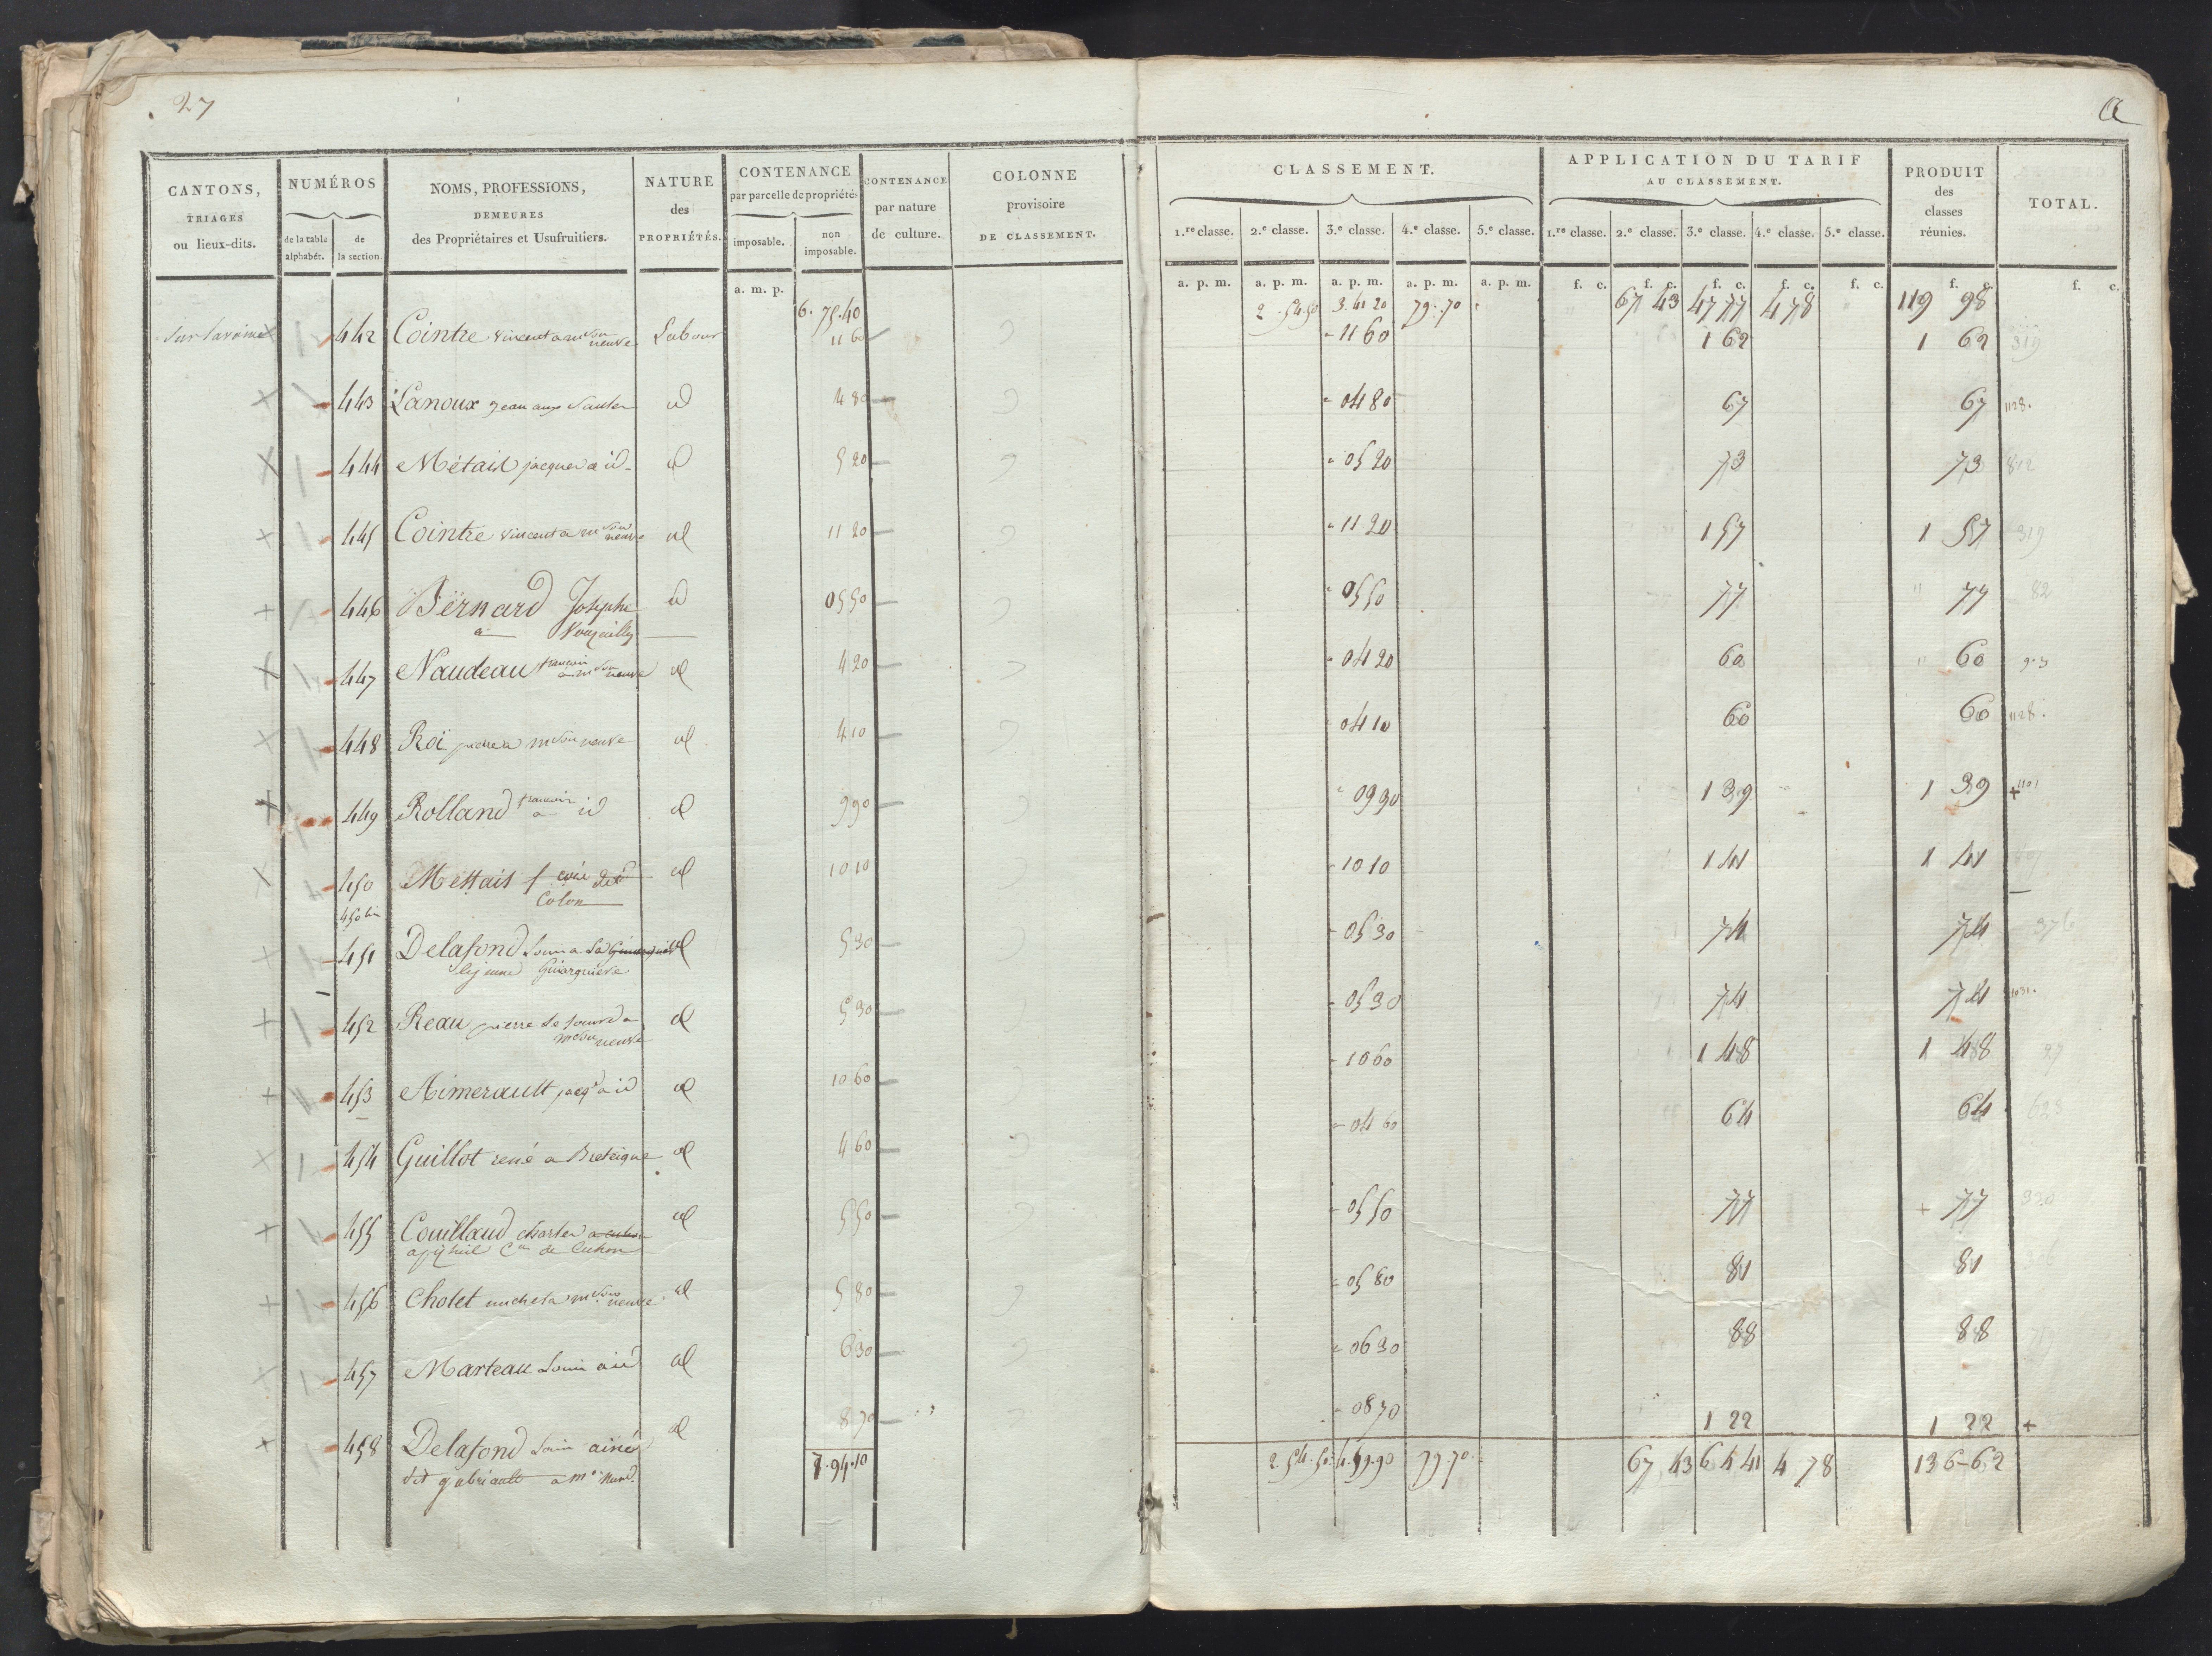 27
a
CANTONS, TRIAGES ou lieux-dits.
NUMÉROS
de la table alphabét.
de la section.
NOMS, PROFESSIONS, DEMEURES des Propriétaires et Usufruitiers.
NATURE des PROPRIÉTÉS.
CONTENANCE par parcelle de propriété.
imposable.
non imposable.
CONTENANCE par nature de culture.
COLONNE provisoire DE CLASSEMENT.
CLASSEMENT.
1.re classe. 2.e classe. 3.e classe. 4.e classe. 5.e classe.
APPLICATION DU TARIF AU CLASSEMENT.
1.re classe. 2.e classe. 3.e classe. 4.e classe. 5.e classe.
PRODUIT des classes réunies.
TOTAL.
a. m. p.
a. p. m. a. p. m. a. p. m. a. p. m. a. p. m. f. c. f. c. f. c. f. c. f. c. f. f. c.
6. 75.40 2.54.50 3.41 20 79.70 67 43 47 77 4 78 119 98
442 Cointre vincent a m.son neuve Labour 11 60 11 60 1 62 1 62 319
443 Lanoux jean aux id 4 80 04 80 67 67 1128.
444 Métais jacques a id id 5 20 05 20 73 73 812
445 Cointre vincent a m.son neuve id 11 20 11 20 1 57 1 57 319
446 Bernard Josephe id 05 50 05 50 77 77 82
a Vouzailly
447 Naudeau francois a m.son neuve id 4 20 04 20 60 60
448 Roi a m.son neuve id 4 10 04 10 60 60 1128.
449 Rolland francois a id id 9 90 09 90 1 39 1 39 + 1101
450 Mettais id 10 10 10 10 1 41 1 41
Colon
450 bis
451 Delafond Louis a La id 5 30 05 30 74 74 376
le jeune
452 Reau pierre le a id 5 30 05 30 74 74 1031.
m.son neuve
453 Aimerault jacq.s a id id 10 60 10 60 1 48 1 48
454 Guillot rené a Bretaigne id 4 60 04 60 64 64 623
455 Couillaud charles id 5 50 05 50 77 + 77
C.ne de Cuhon
456 Cholet michel a m.son neuve id 5 80 05 80 81 81 306
457 Marteau Louis a id id 6 30 06 30 88 88
458 Delafond Louis ainé id 8 70 08 70 1 22 1 22 +
dit gabriault a m.on neuve
7.94.10 2.54.50 4.59.90 79.70 67 43 64 41 4 78 136-62